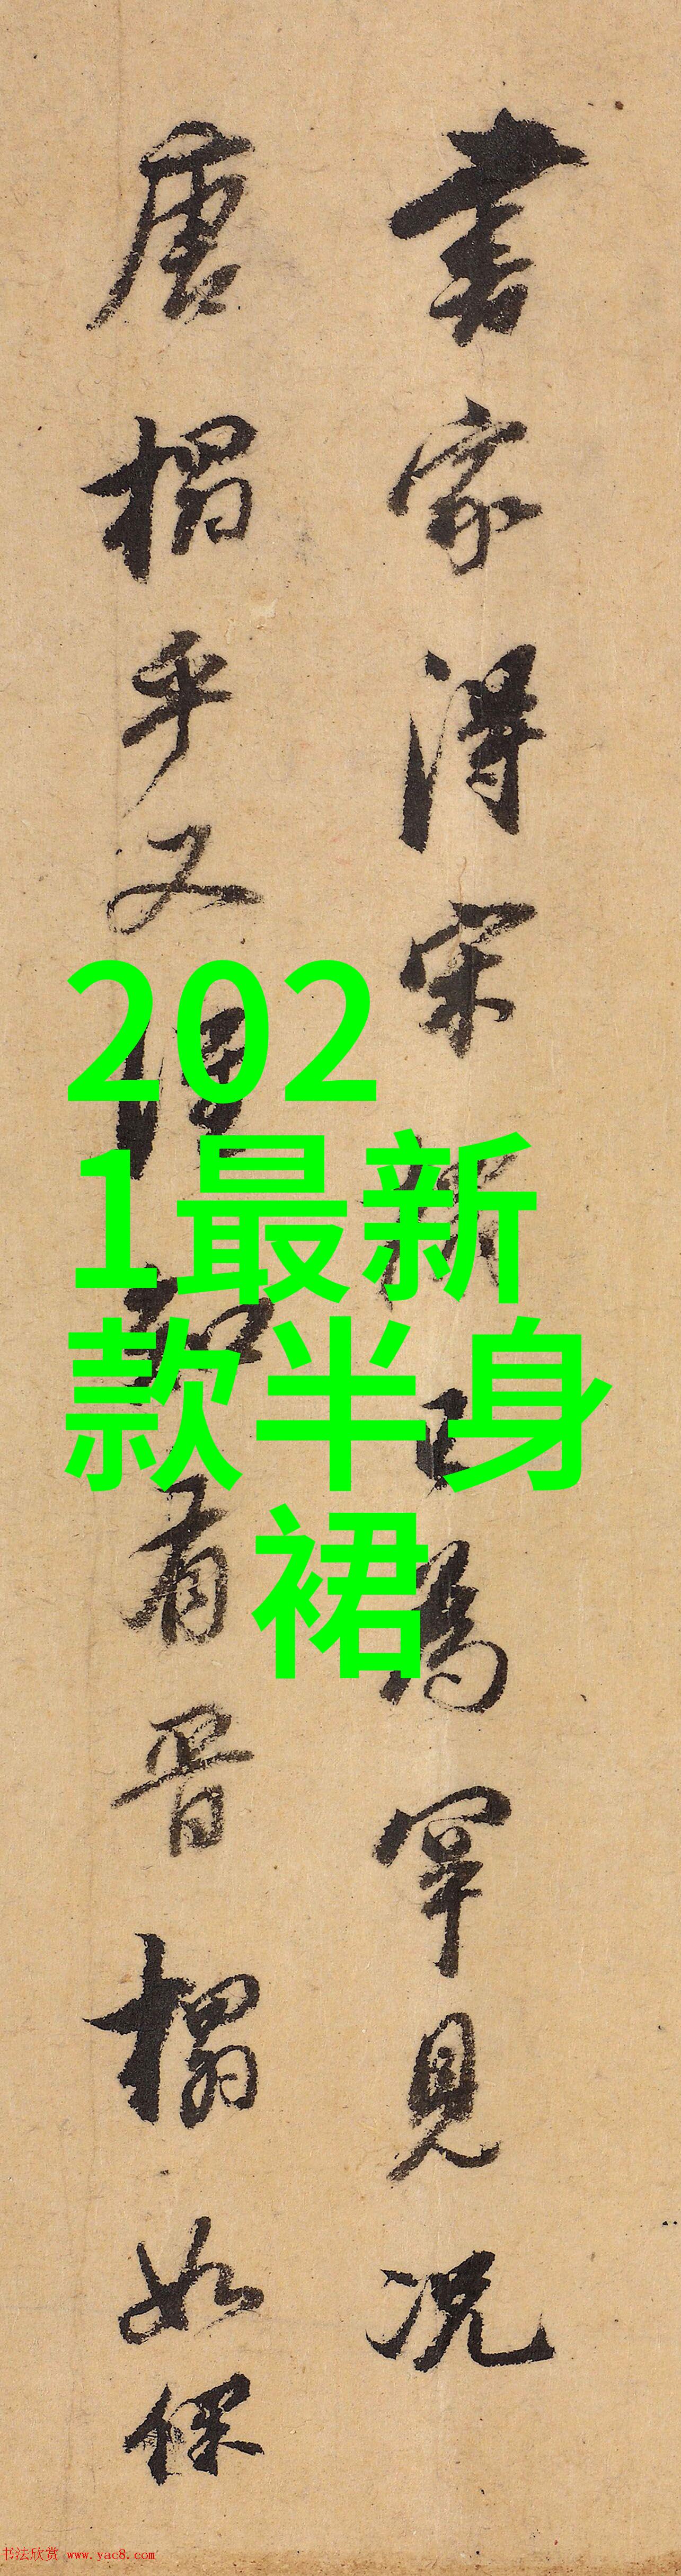 書家得宋已為罕見况
唐榻乎又有晉榻如保
202
1最新
款半身
裙
书法欣赏 www.yac8.com